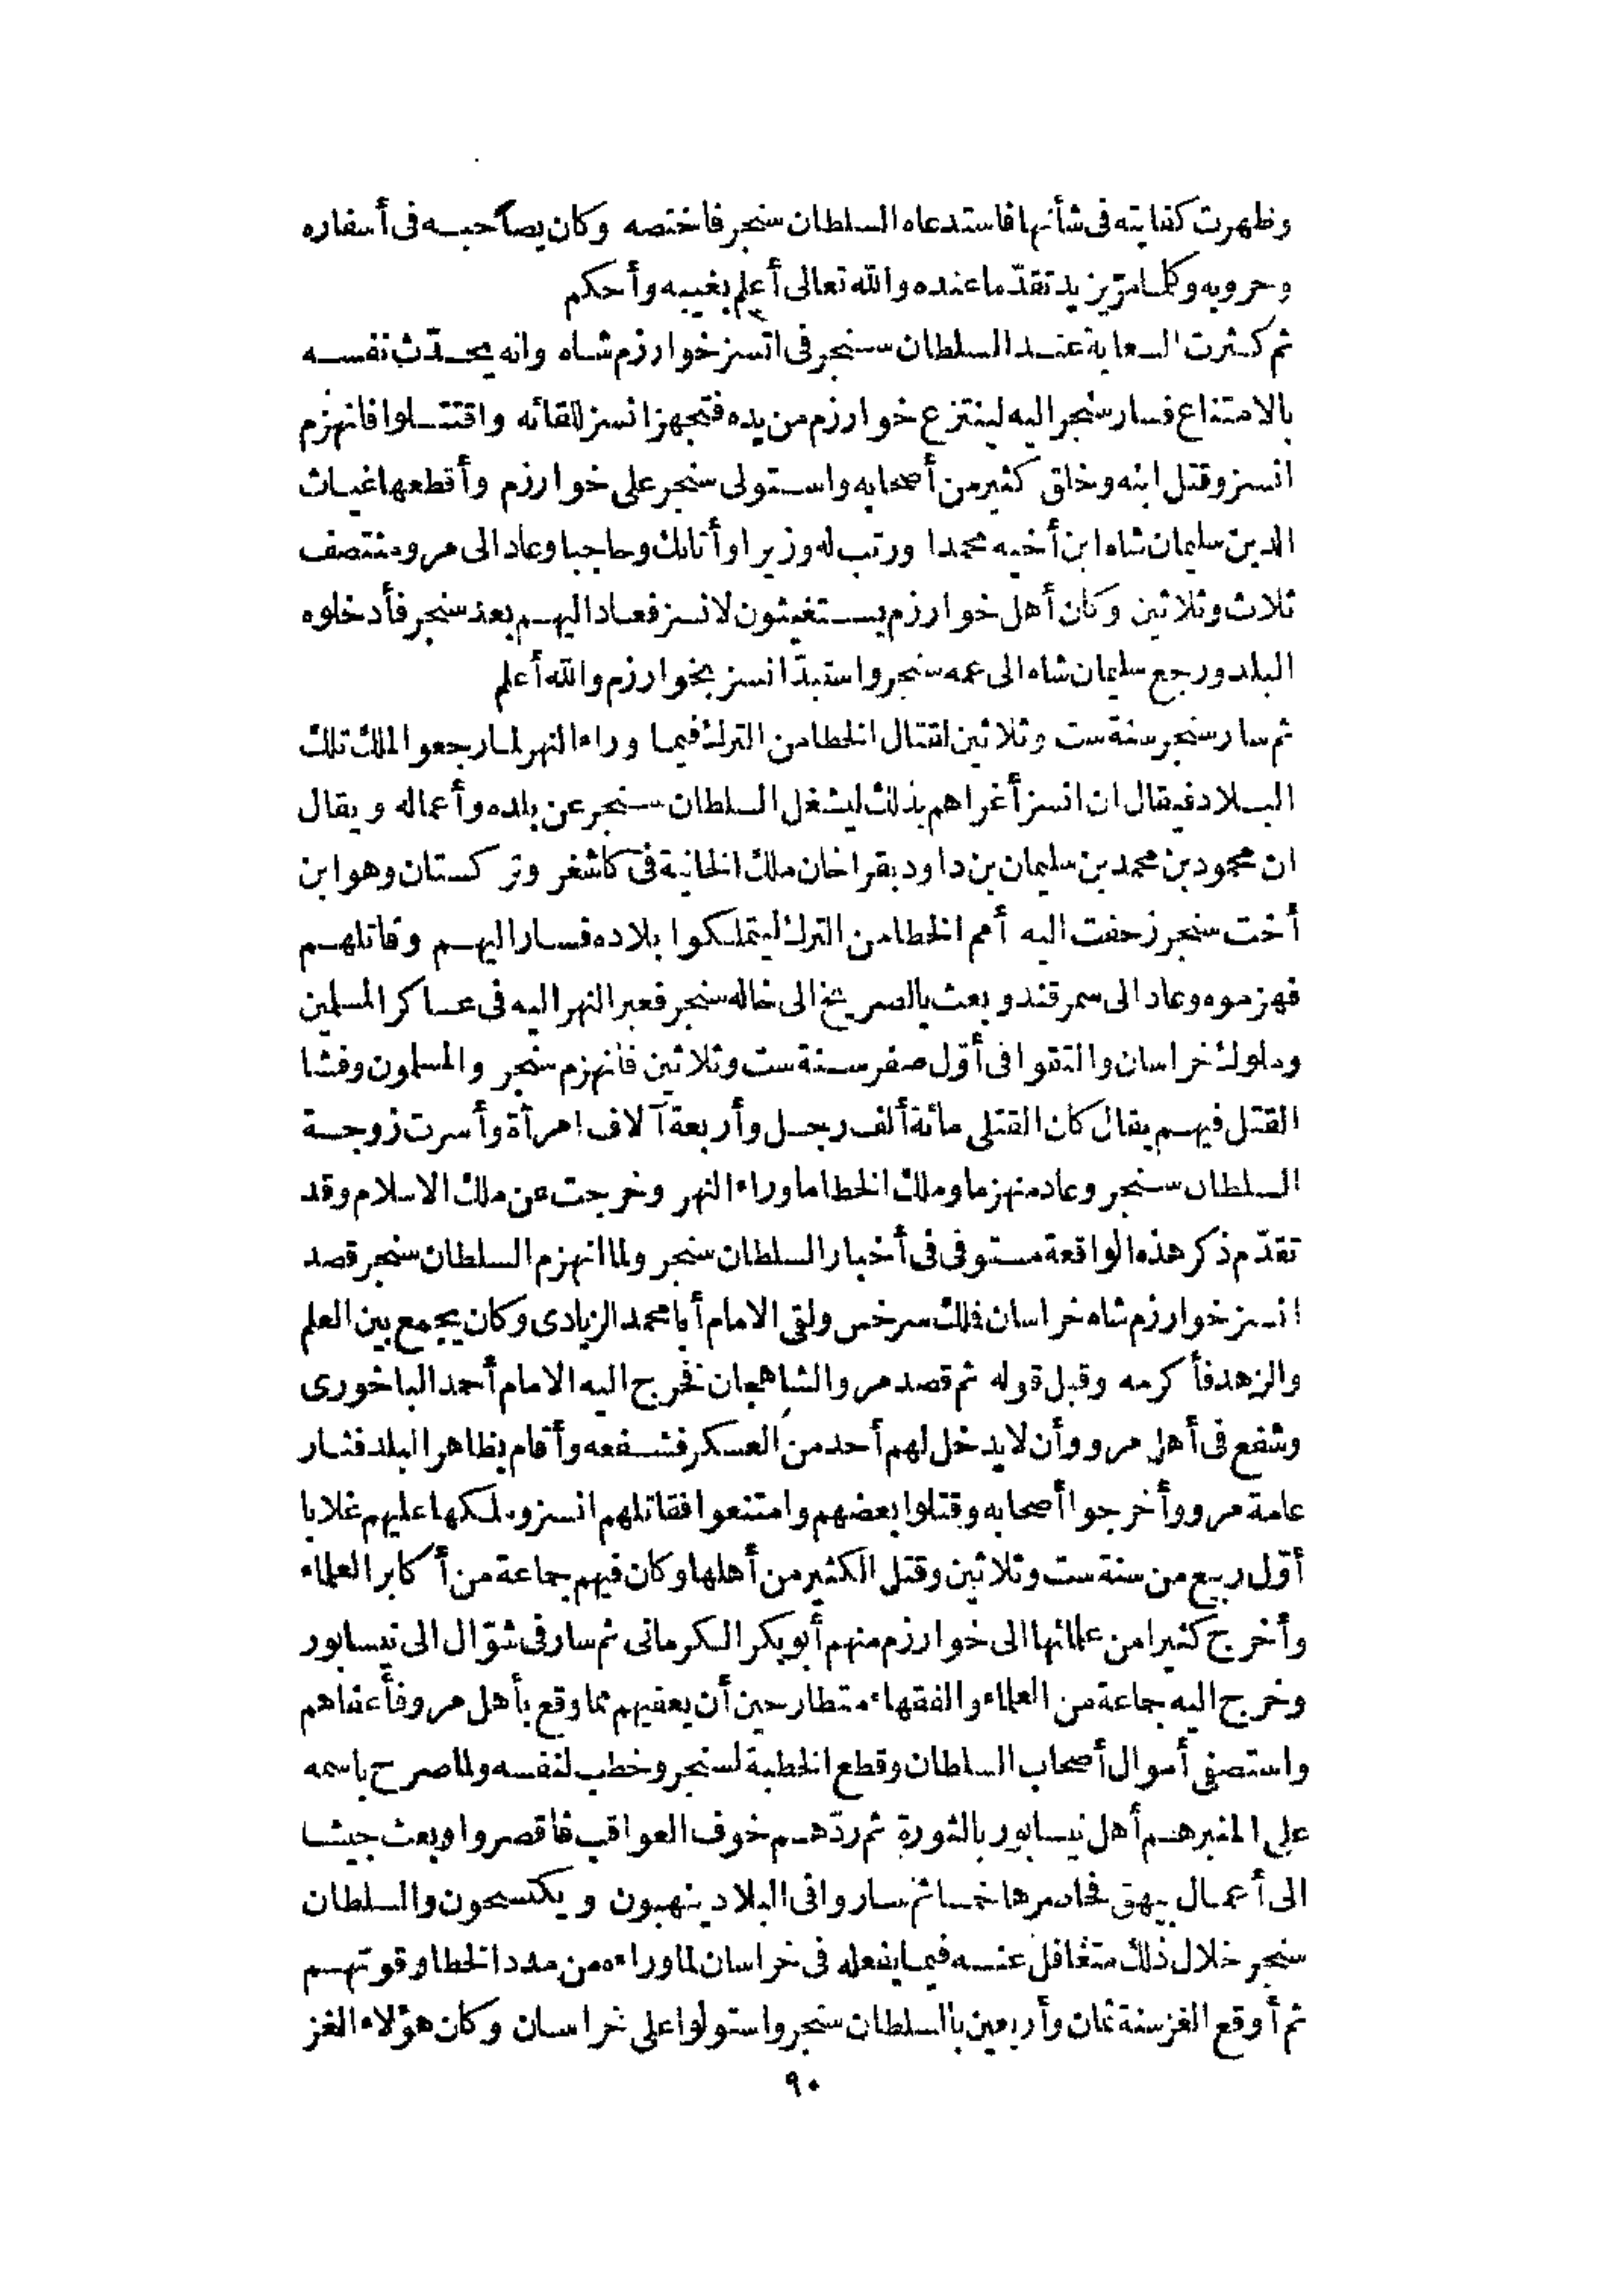 وظهرت كفايته فى شأنها فاستدعاه السلطان سنجر فاختصه وكان يصاحبه فى أسفاره
وحروبه وكلما مرّ يزيد تقدّما عنده والله تعالى أعلم بغيبه وأحكم
ثم كثرت السعاية عند السلطان سنجر فى اتسز خوارزم شاه وانه يحدّث نفسه
بالامتناع فسار سنجر اليه لينتزع خوارزم من يده فتجهز اتسز للقائه واقتتلوا فانهزم
اتسز وقتل ابنه وخلق كثير من أصحابه واستولى سنجر على خوارزم وأقطعها غياث
الدين سليمان شاه ابن أخيه محمدا ورتب له وزيرا وأتابك وحاجبا وعاد الى مرو منتصف
ثلاث وثلاثين وكان أهل خوارزم يستغيثون لاتسز فعاد اليهم بعد سنجر فأدخلوه
البلد ورجع سليمان شاه الى عمه سنجر واستبدّ اتسز بخوارزم والله أعلم
ثم سار سنجر سنة ست وثلاثين لقتال الخطا من الترك فيما وراء النهر لما رجعوا لملك تلك
البلاد فيقال ان اتسز أغراهم بذلك ليشغل السلطان سنجر عن بلده وأعماله ويقال
ان محمود بن محمد بن سليمان بن داود بقراخان ملك الخانية فى كاشغر وتركستان وهو ابن
أخت سنجر زحفت اليه أمم الخطا من الترك ليتملكوا بلاده فسار اليهم وقاتلهم
فهزموه وعاد الى سمرقند وبعث بالصريخ الى خاله سنجر فعبر النهر اليه فى عساكر المسلمين
وملوك خراسان والتقوا فى أوّل صفر سنة ست وثلاثين فانهزم سنجر والمسلمون وفشا
القتل فيهم يقال كان القتلى مائة ألف رجل وأربعة آلاف امرأة وأسرت زوجة
السلطان سنجر وعاد منهزما وملك الخطا ما وراء النهر وخرجت عن ملك الاسلام وقد
تقدّم ذكر هذه الواقعة مستوفى فى أخبار السلطان سنجر ولما انهزم السلطان سنجر قصد
اتسز خوارزم شاه خراسان فملك سرخس ولقى الامام أبا محمد الزيادى وكان يجمع بين العلم
والزهد فأكرمه وقبل قوله ثم قصد مرو الشاهجان فخرج اليه الامام أحمد الباخورى
وشفع فى أهل مرو وأن لا يدخل لهم أحد من العسكر فشفعه وأقام بظاهر البلد فثار
عامة مرو وأخرجوا أصحابه وقتلوا بعضهم وامتنعوا فقاتلهم اتسز وملكها عليهم غلابا
أوّل ربيع من سنة ست وثلاثين وقتل الكثير من أهلها وكان فيهم جماعة من أكابر العلماء
وأخرج كثيرا من علمائها الى خوارزم منهم أبو بكر الكرمانى ثم سار فى شوّال الى نيسابور
وخرج اليه جماعة من العلماء والفقهاء متطارحين أن يعفيهم مما وقع بأهل مرو فأعفاهم
واستصفى أموال أصحاب السلطان وقطع الخطبة لسنجر وخطب لنفسه ولما صرح باسمه
على المنبر هم أهل نيسابور بالثورة ثم ردّهم خوف العواقب فاقصروا وبعث جيشا
الى أعمال بيهق فحاصرها خمسا ثم ساروا فى البلاد ينهبون ويكتسحون والسلطان
سنجر خلال ذلك متغافل عنه فيما يفعله فى خراسان لما وراءه من مدد الخطا وقوتهم
ثم أوقع الغز سنة ثمان وأربعين بالسلطان سنجر واستولوا على خراسان وكان هؤلاء الغز
٩٠